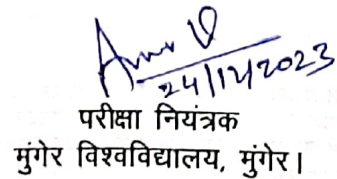 24/12/2023
परीक्षा नियंत्रक
मुंगेर विश्वविद्यालय, मुंगेर।